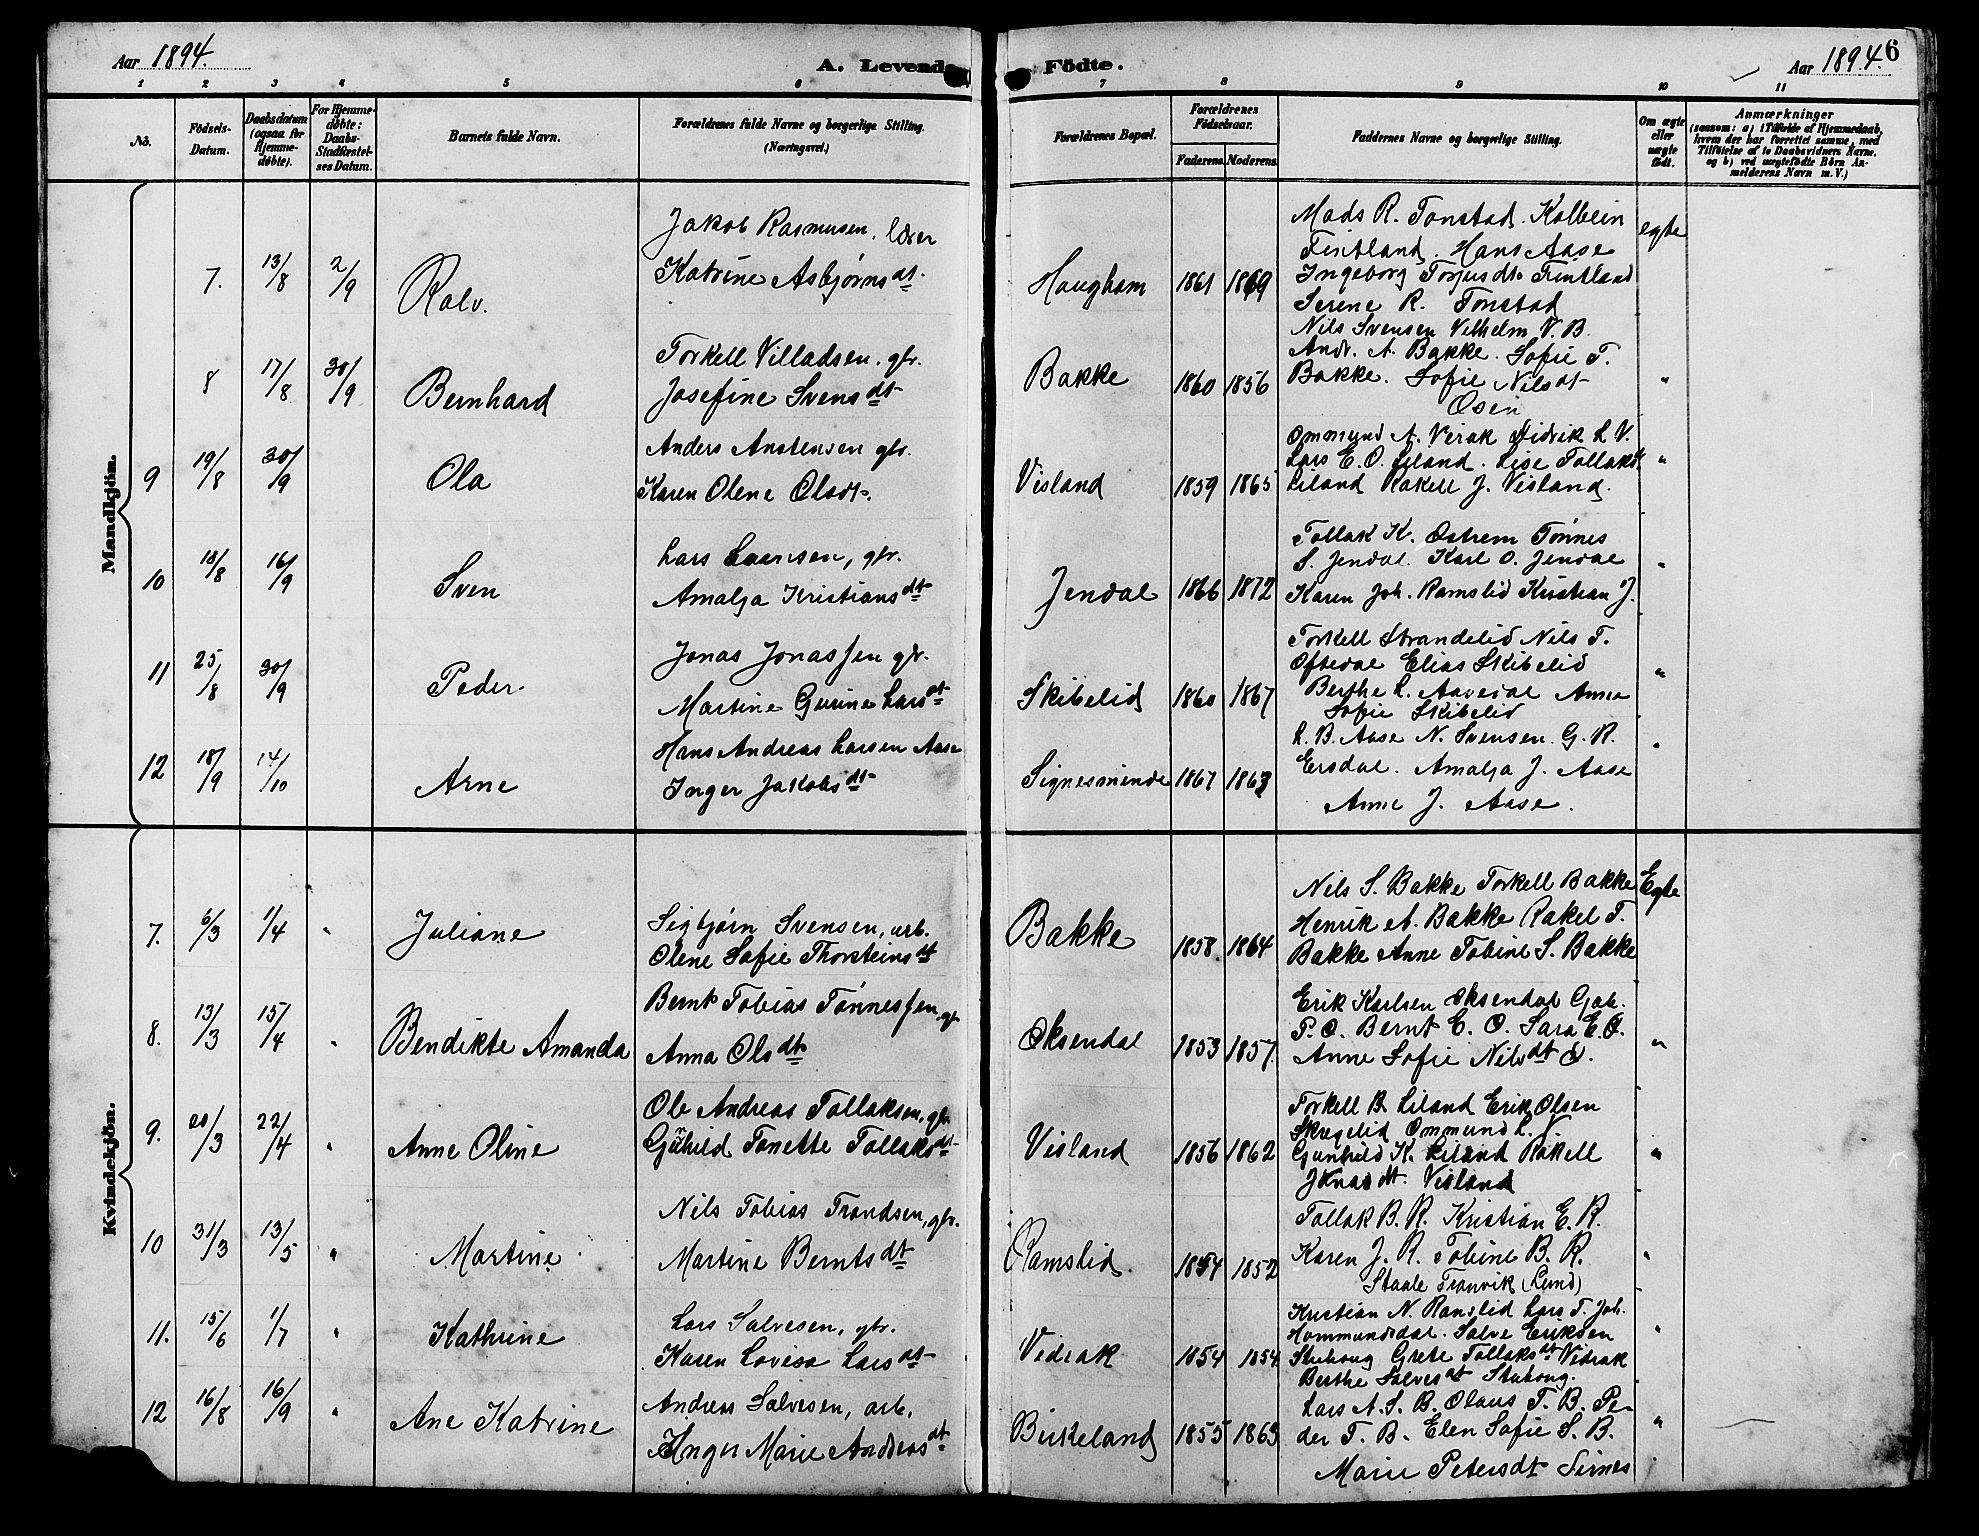 Aar 1894. A. Levende Födte. Aar 1894. 6
1 2 3 4 5 6 7 8 9 10 11
No. Födsels-Datum. Daabsdatum (ogsaa for Hjemme-døbte). For Hjemme-døbte: Daabs-Stadfæstel-ses Datum. Barnets fulde Navn. Forældrenes fulde Navne og borgerlige Stilling. (Næringsvei.) Forældrenes Bopæl. Forældrenes Födselsaar. Faderens. Moderens. Faddernes Navne og borgerlige Stilling. Om ægte eller uægte født. Anmærkninger (saasom: a) i Tilfælde af Hjemmedaab, hvem der har forrettet samme, med Tilföielse af to Daabsvidners Navne, og b) ved uægtefødte Børn An-melderens Navn m. V.)
Mandkjön.
7. 13/8 2/9 Ralv. Jakob Rasmusen, lærer
Katrine Asbjørnsdt. Haugham 1861 1869 Mads R. Tonstad. Kolbein
Fintland. Hans Aase
Ingeborg Torjusdt. Fintland
Serene R. Tonstad egte
8 17/8 30/9 Bernhard Torkell Villadsen, gbr.
Josefine Svensdt Bakke 1860 1856 Nils Svensen Vilhelm V. B.
Andr. A. Bakke. Sofie T.
Bakke. Sofie Nilsdt
Osen "
9 19/8 30/9 Ola Anders Anstensen gbr.
Karen Olene Olsdt. Visland 1859 1865 Ommund A. Virak Hidrik L V.
Lars E. O. Liland. Lise Tollaksdt
Liland Rakell J. Visland. "
10 18/8 16/9 Sven Lars Larsen, gbr.
Amalja Kristiansdt Jendal 1866 1872 Tollak K. Østrem Tønnes
S. Jendal. Karl O. Jendal
Karen Joh. Ramslid Kristian J. "
11 25/8 30/9 Peder. Jonas Jonassen gbr.
Martine Gurine Larsdt Skibelid 1860 1867 Torkell Strandelid Nils T.
Oftedal Elias Skibelid
Berthe L. Aavedal Anna
Sofie Skibelid "
12 18/9 14/10 Arne Hans Andreas Larsen Aase
Inger Jakobsdt Signesminde 1867 1863 L. B. Aase N. Svensen. G. R.
Ersdal. Amalja J. Aase
Anne J. Aase. "
Kvindekjön.
7. 6/3 1/4 " Juliane Sigbjørn Svensen, arb.
Olene Sofie Thorsteinsdt Bakke 1858 1864 Nils S. Bakke Torkell Bakke
Henrik A. Bakke Rakel T.
Bakke Anne Tobine S. Bakke Egte
8. 13/3 15/4 " Bendikte Amanda Bernt Tobias Tønnessen, gb
Anna Olsdt Øksendal 1853 1857 Erik Karlsen Øksendal Gab.
P. Ø. Bernt E. Ø. Sara E. Ø.
Anne Sofie Nilsdt Ø. "
9. 20/3 22/4 " Anne Oline Ole Andreas Tollaksen, gbr
Gunhild Tonette Tollaksdt Visland 1856 1862 Torkell B. Liland Erik Olsen
Skregelid Ommund L. V.
Gunhild K. Liland Rakell
Jonasdt. Visland "
10 31/3 13/5 " Martine Nils Tobias Trondsen, gbr.
Martine Berntsdt Ramslid. 1854 1852 Tollak B. R. Kristian E. R.
Karen J. R. Tobine B. R.
Staale Tranvik (Lund) "
11. 15/6 1/7 " Kathrine Lars Salvesen, gbr.
Karen Lovisa Larsdt Vidrak 1854 1854 Kristian N. Ramslid Lars T. Joh.
Hommundsdal. Salve Eriksen
Stuhaug Grete Tollaksdt Vidrak
Berthe Salvesdt Stuhaug. "
12 16/8 16/9 " Ane Katrine Andreas Salvesen, arb.
Inger Marie Andreasdt Birkeland 1855 1863 Lars A. S. B. Olaus T. B. Pe-
der T. B. Elen Sofie S. B.
Marie Petersdt Sirnes "